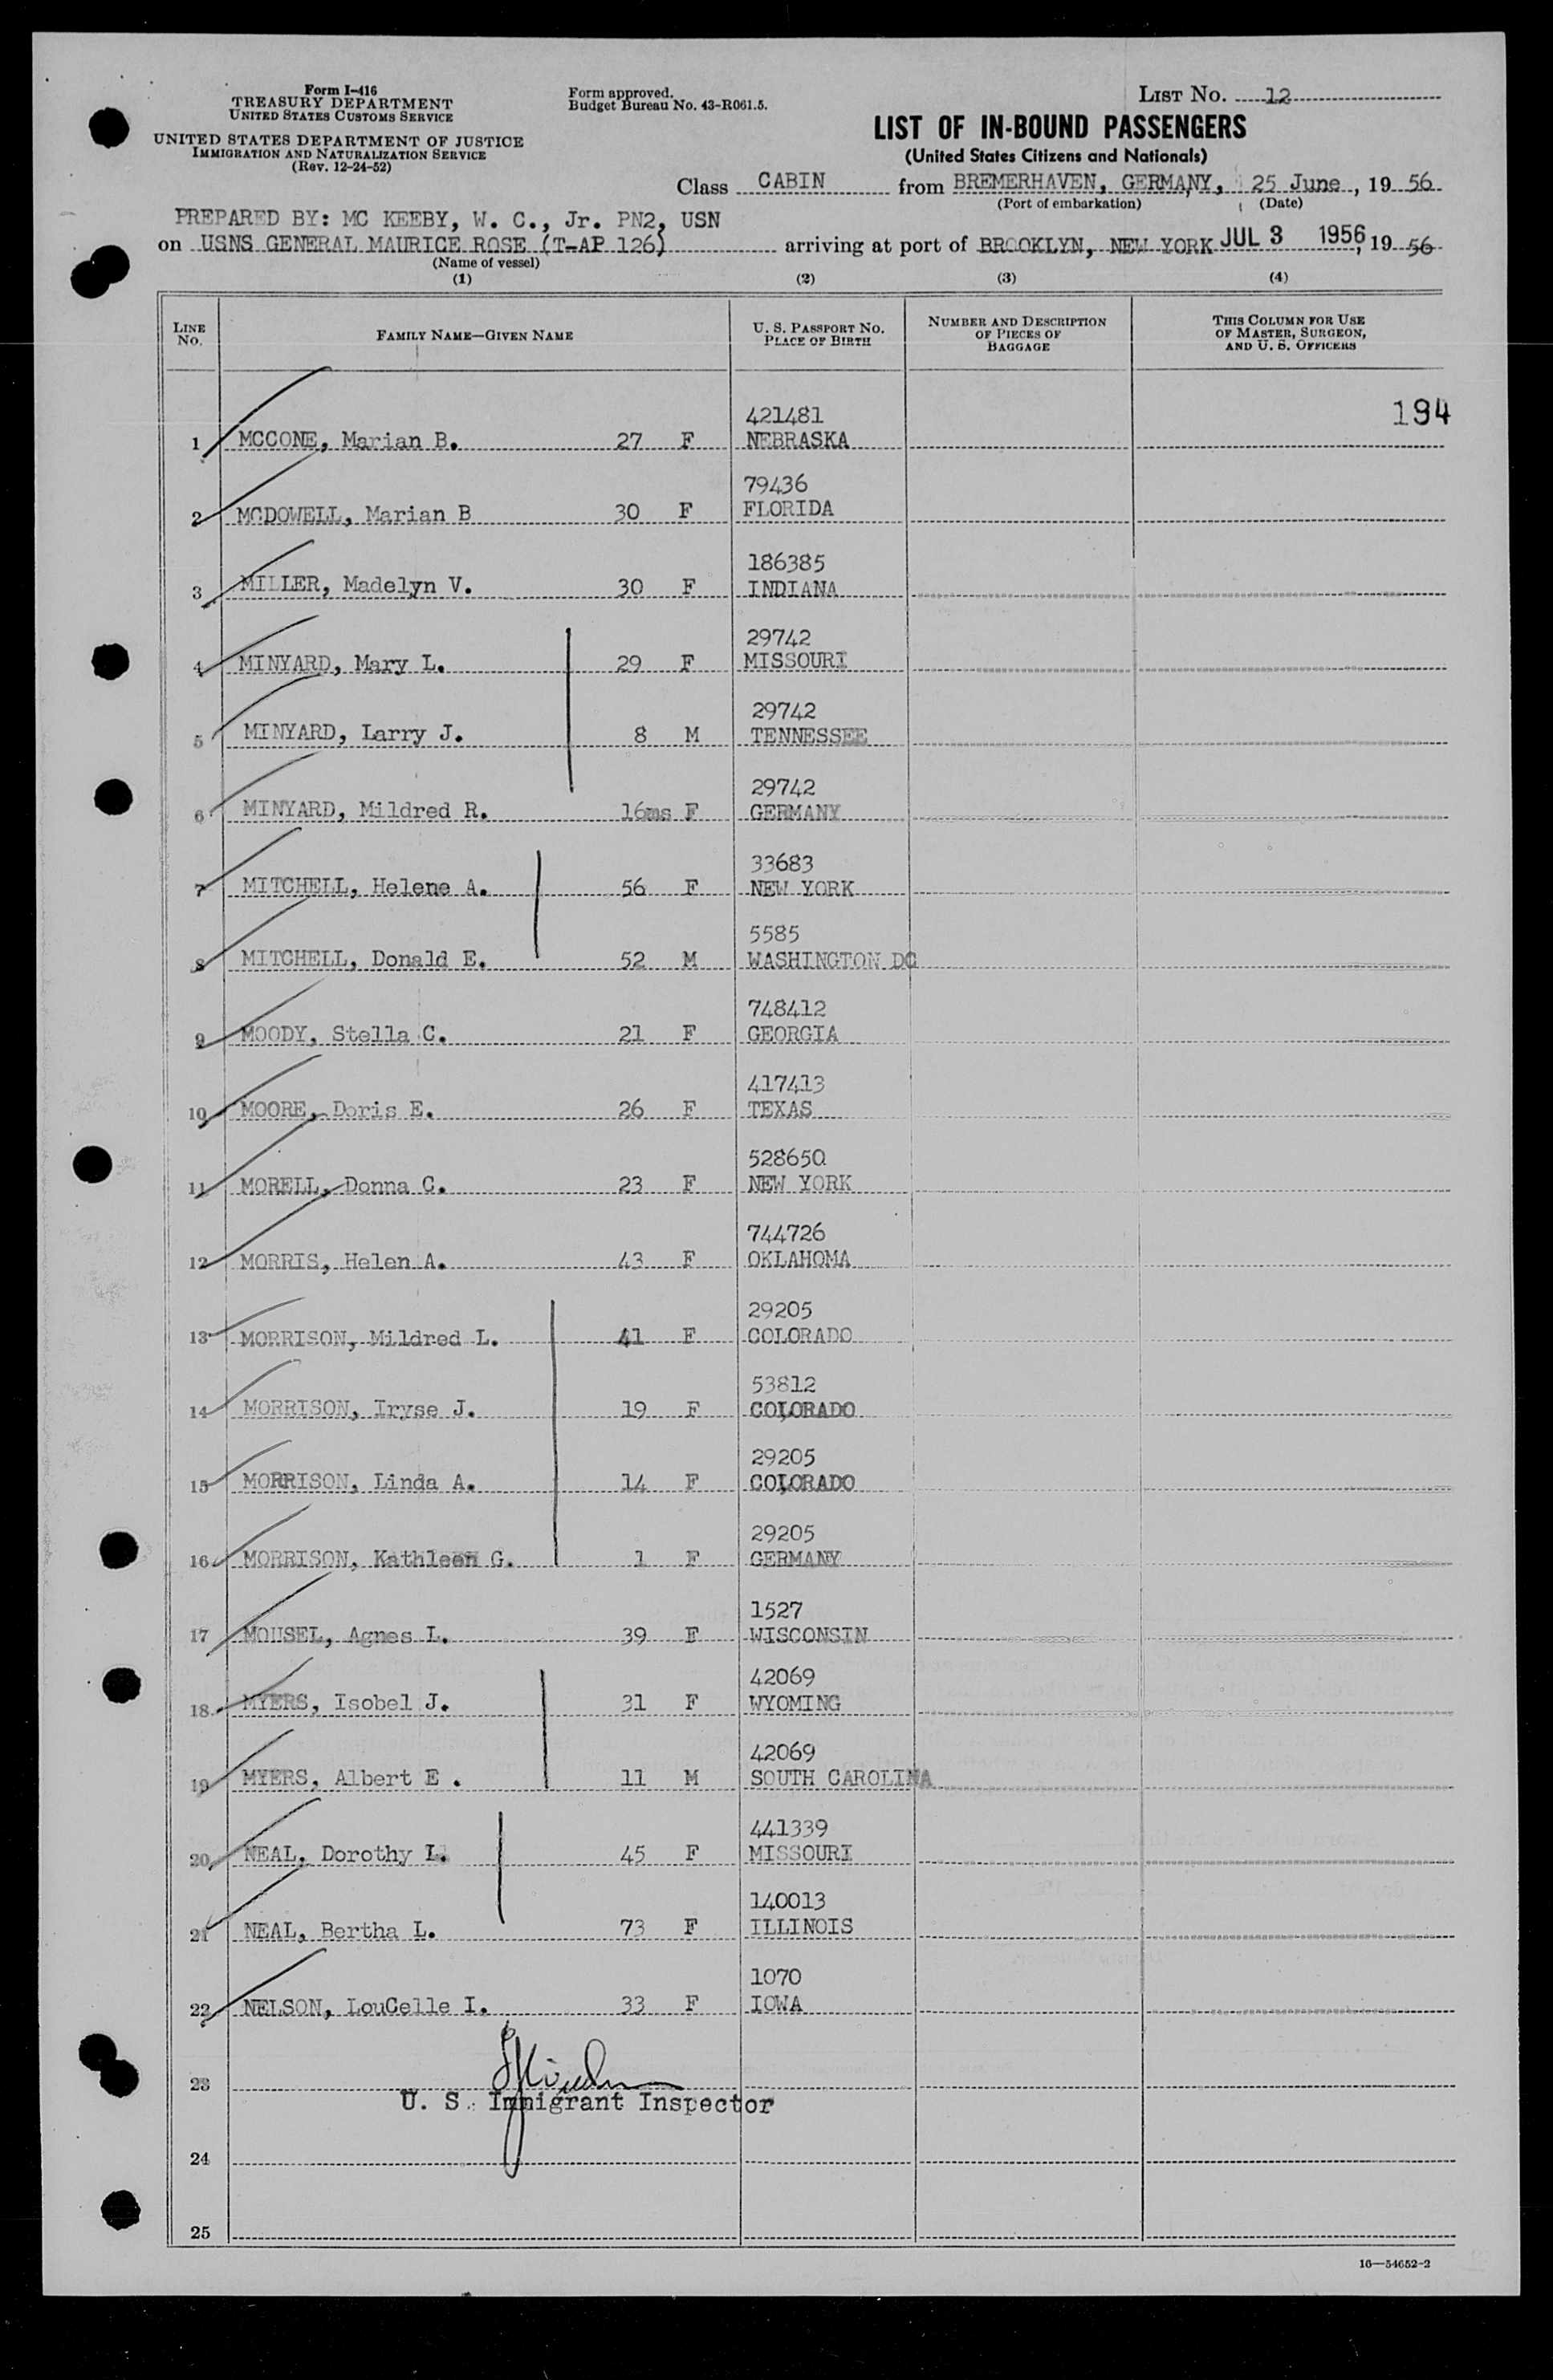 Form I-416
TREASURY DEPARTMENT
UNITED STATES CUSTOMS SERVICE
UNITED STATES DEPARTMENT OF JUSTICE
IMMIGRATION AND NATURALIZATION SERVICE
(Rev. 12-24-52)
Form approved.
Budget Bureau No. 43-R061.5.
LIST No. 12
LIST OF IN-BOUND PASSENGERS
(United States Citizens and Nationals)
Class CABIN from BREMERHAVEN, GERMANY, 25 June, 19 56
(Port of embarkation) (Date)
PREPARED BY: MC KEEBY, W. C., Jr. PN2, USN
on USNS GENERAL MAURICE ROSE (T-AP 126) arriving at port of BROOKLYN, NEW YORK JUL 3 1956, 19 56
(Name of vessel)
(1) (2) (3) (4)
LINE No. FAMILY NAME—GIVEN NAME U. S. PASSPORT NO. PLACE OF BIRTH NUMBER AND DESCRIPTION OF PIECES OF BAGGAGE THIS COLUMN FOR USE OF MASTER, SURGEON, AND U. S. OFFICERS
194
421481
1 MCCONE, Marian B. 27 F NEBRASKA
79436
2 MCDOWELL, Marian B 30 F FLORIDA
186385
3 MILLER, Madelyn V. 30 F INDIANA
29742
4 MINYARD, Mary L. 29 F MISSOURI
29742
5 MINYARD, Larry J. 8 M TENNESSEE
29742
6 MINYARD, Mildred R. 16ms F GERMANY
33683
7 MITCHELL, Helene A. 56 F NEW YORK
5585
8 MITCHELL, Donald E. 52 M WASHINGTON DC
748412
9 MOODY, Stella C. 21 F GEORGIA
417413
10 MOORE, Doris E. 26 F TEXAS
528650
11 MORELL, Donna C. 23 F NEW YORK
744726
12 MORRIS, Helen A. 43 F OKLAHOMA
29205
13 MORRISON, Mildred L. 41 F COLORADO
53812
14 MORRISON, Iryse J. 19 F COLORADO
29205
15 MORRISON, Linda A. 14 F COLORADO
29205
16 MORRISON, Kathleen G. 1 F GERMANY
1527
17 MOUSEL, Agnes L. 39 F WISCONSIN
42069
18 MYERS, Isobel J. 31 F WYOMING
42069
19 MYERS, Albert E . 11 M SOUTH CAROLINA
441339
20 NEAL, Dorothy L. 45 F MISSOURI
140013
21 NEAL, Bertha L. 73 F ILLINOIS
1070
22 NELSON, LouCelle I. 33 F IOWA
23
U. S. Immigrant Inspector
24
25
16—54652-2